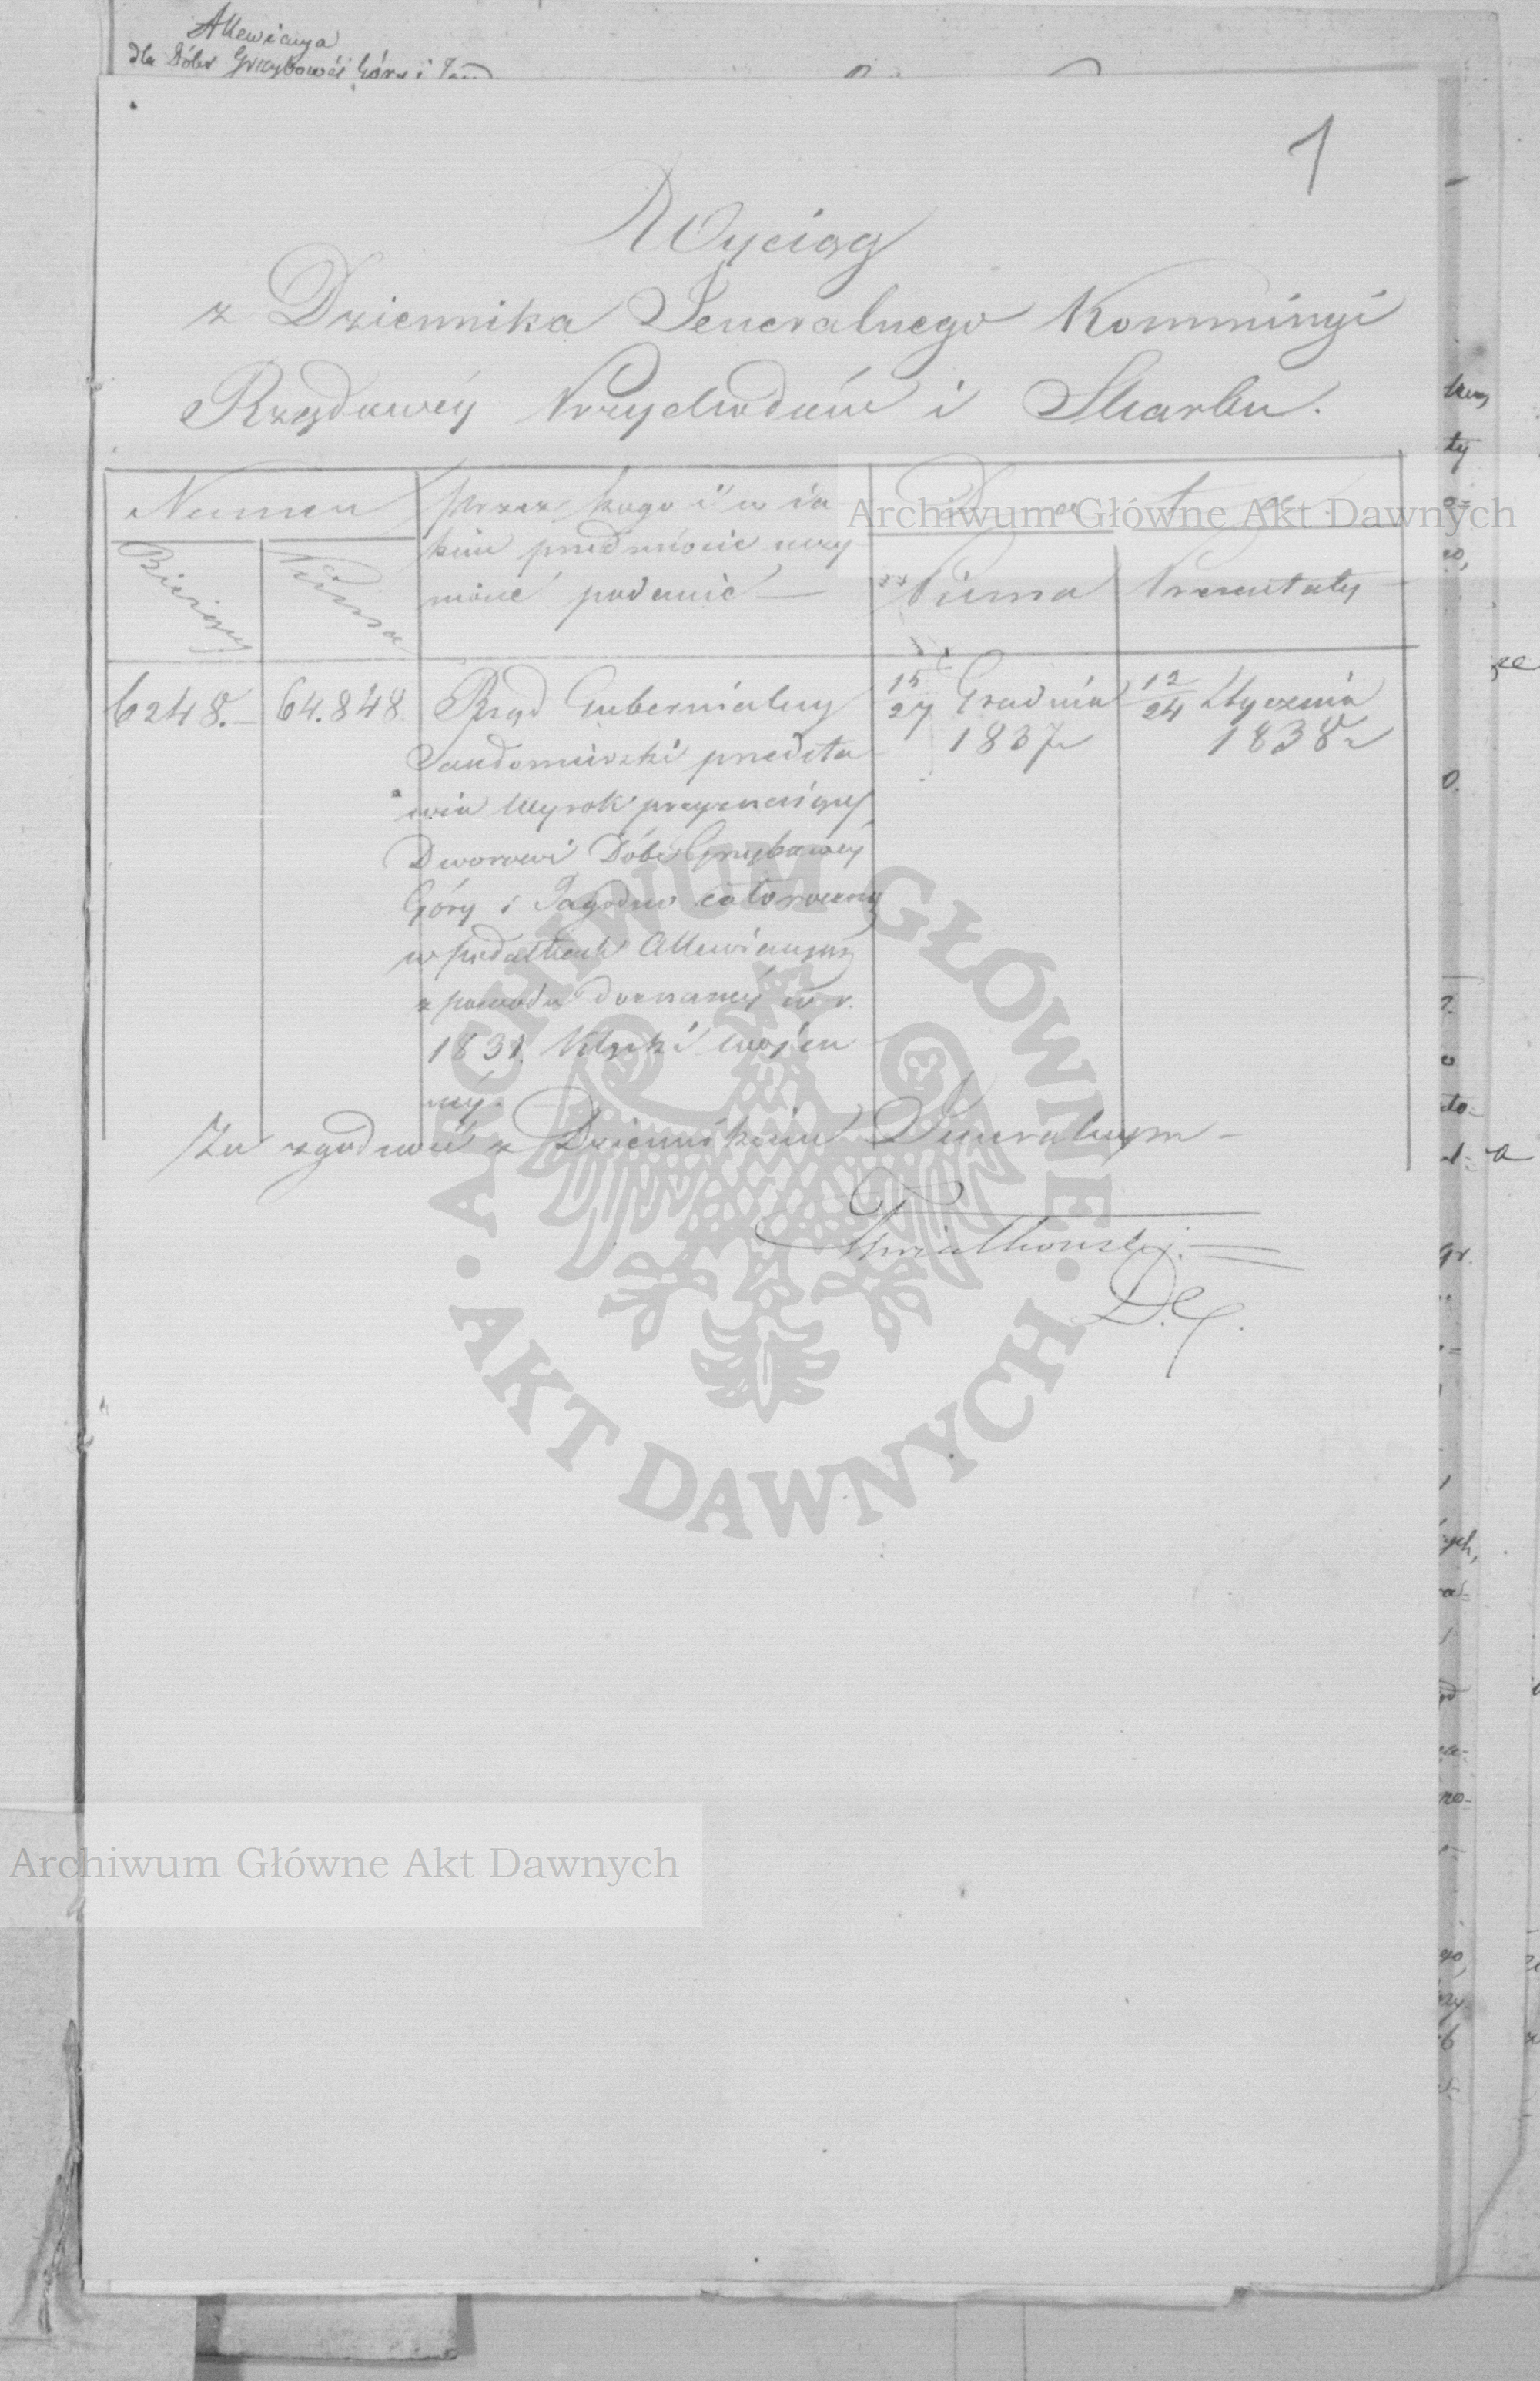 Allewiacya
dla Dóbr Grzybowéj Góry i
1
Wyciąg
z Dziennika Jeneralnego Kommissyi
Rządowéj Przychodów i Skarbu.
Numer
Bieżący
Pisma
przez kogo i w ia
kim przedmiocie uczy
nioné podanié
Data
Pisma
Prezentaty
6248.
64.848
Rząd Gubernialny
Sandomirski przedsta
wia Wyrok przyznaiący
Dworowi Dóbr Grzybowéj
Góry i Jagodne całoroczną
w podatkach Allewiacyą
z powodu doznanéj w r.
1831. Klęski wojen
néj.
15/27 Grudnia
1837 r
12/24 Stycznia
1838 r
Za zgodność z Dziennikiem Jeneralnym
Kwiatkowski
Archiwum Główne Akt Dawnych
ARCHIWUM GŁÓWNE
AKT DAWNYCH
Archiwum Główne Akt Dawnych